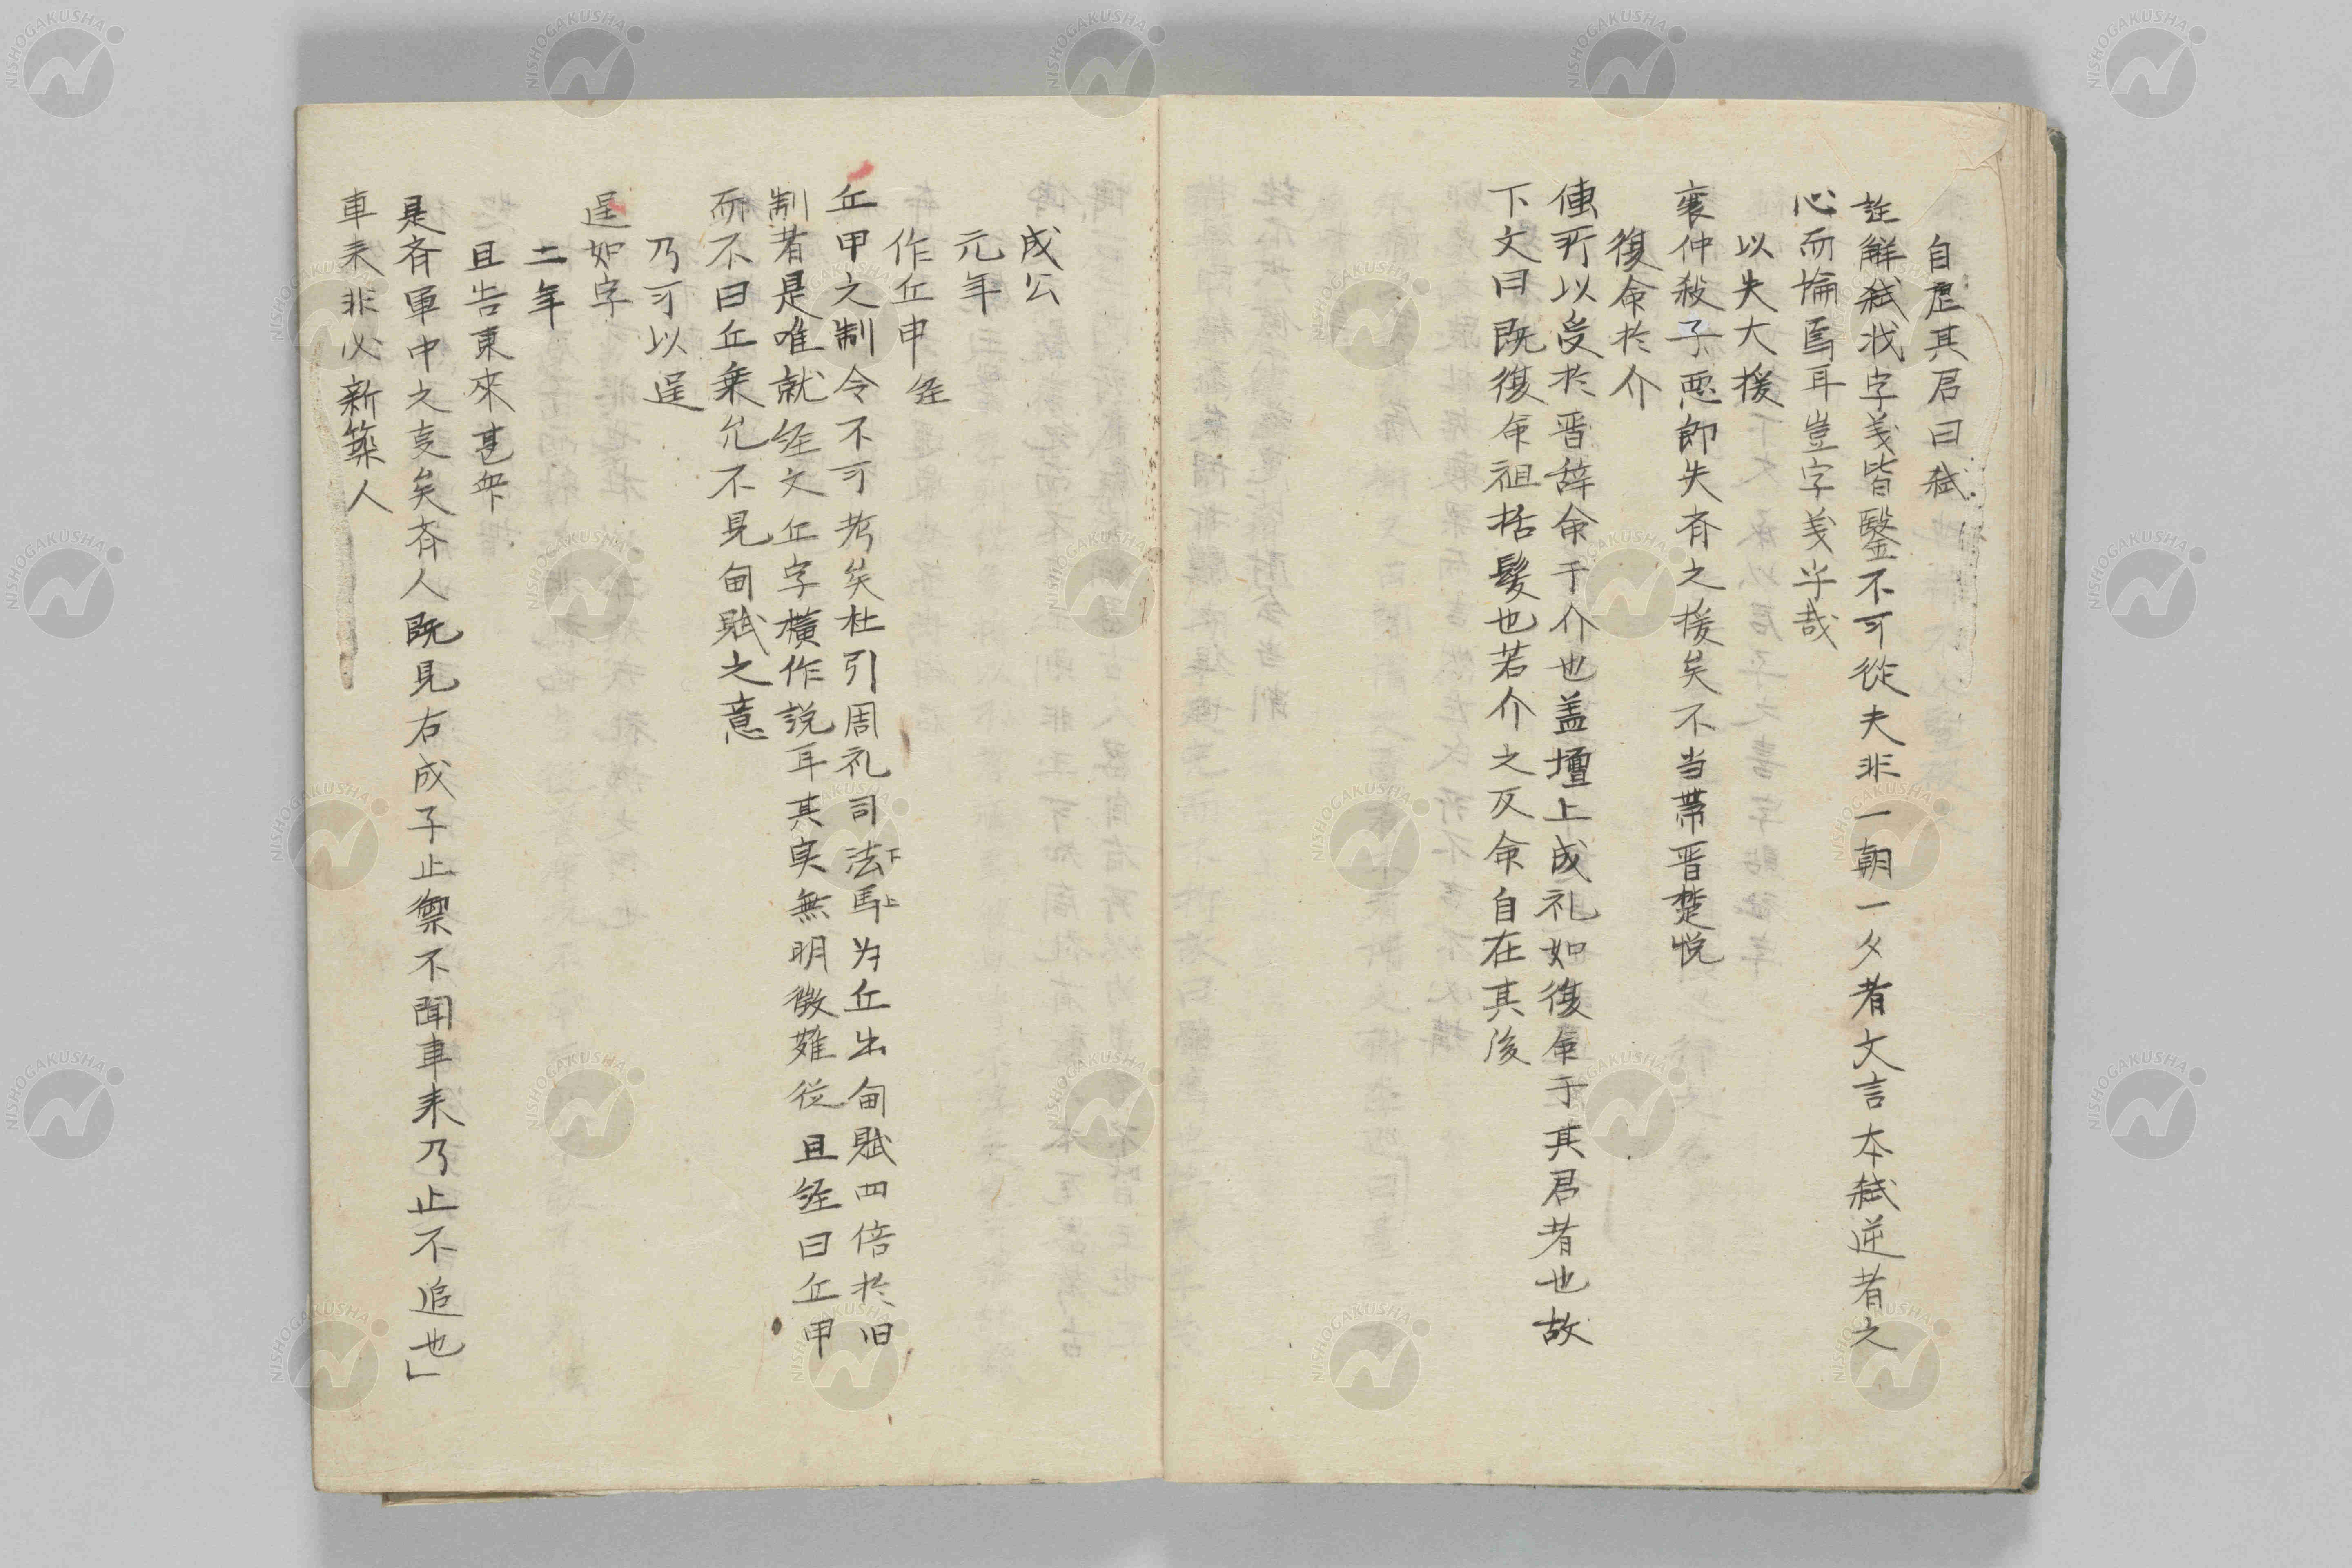 自虐其君曰弑
註解弑戕字義皆鑿不可從夫非一朝一夕者文言本弑逆者之
心而論焉耳豈字義乎哉
以失大援
襄仲殺子惡即失斉之援矣不当帯晋楚悦
復命於介
傳所以受於晋辞命于介也盖壇上成礼如復命于其君者也故
下文曰既復命袒括髪也若介之反命自在其後
成公
元年
作丘甲経
丘甲之制今不可考矣杜引周礼司法下馬上为丘出甸賦四倍於旧
制者是唯就経文丘字横作説耳其実無明徴難従且経曰丘甲
而不曰丘乗允不見甸賦之意
乃可以逞
逞如字
二年
且告東來甚衆
是斉軍中之言矣斉人既見右成子止禦不聞車来乃止不追也」
車来非必新築人
NISHOGAKUSHA